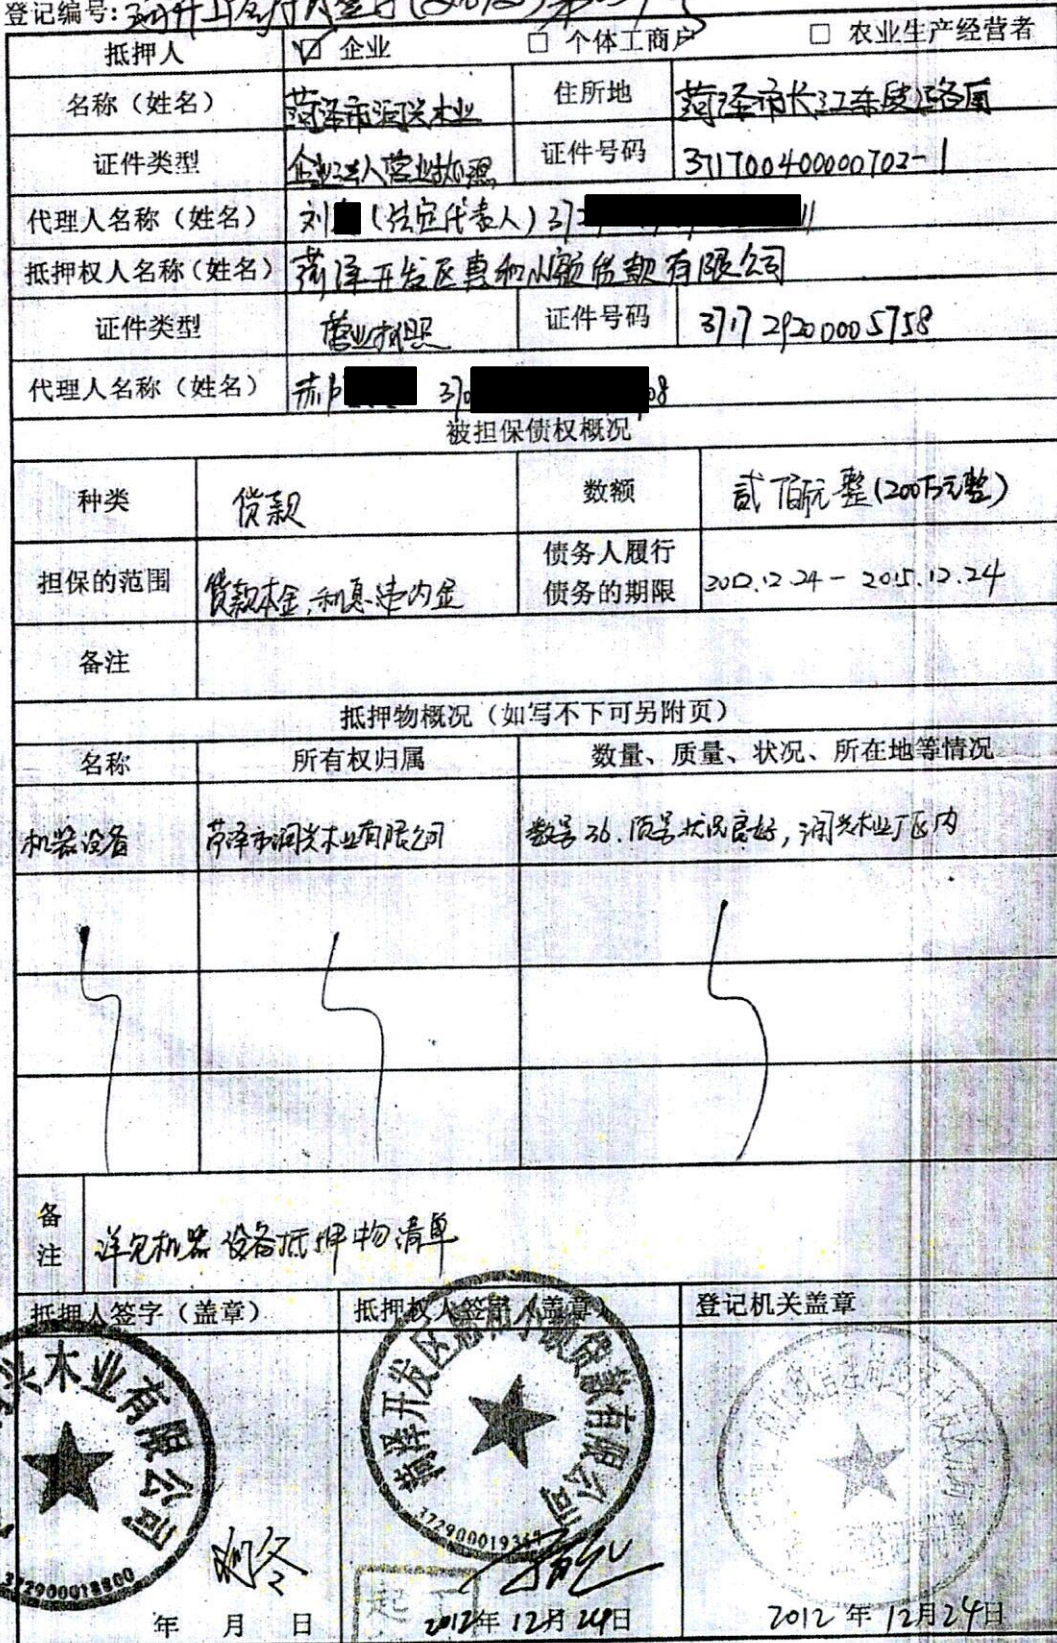 登记编号:
抵押人 ☑ 企业 □ 个体工商户 □ 农业生产经营者
名称（姓名） 菏泽市润兴木业 住所地 菏泽市长江东段路南
证件类型 企业法人营业执照 证件号码 371700400000702-1
代理人名称（姓名） 刘 (法定代表人) 372 11
抵押权人名称（姓名） 菏泽开发区惠和小额贷款有限公司
证件类型 营业执照 证件号码 371729200005758
代理人名称（姓名） 370 08
被担保债权概况
种类 贷款 数额 贰佰万元整(200万元整)
担保的范围 贷款本金,利息违约金 债务人履行
债务的期限 2012.12.24-2015.12.24
备注
抵押物概况（如写不下可另附页）
名称 所有权归属 数量、质量、状况、所在地等情况
机器设备 菏泽市润兴木业有限公司 数量36.质量状况良好,润兴木业厂区内
备注 详见机器设备抵押物清单
抵押人签字（盖章） 抵押权人签字（盖章） 登记机关盖章
兴木业有限公司
372900018800
菏泽开发区惠和小额贷款有限公司
年 月 日 2012年12月24日 2012年12月24日